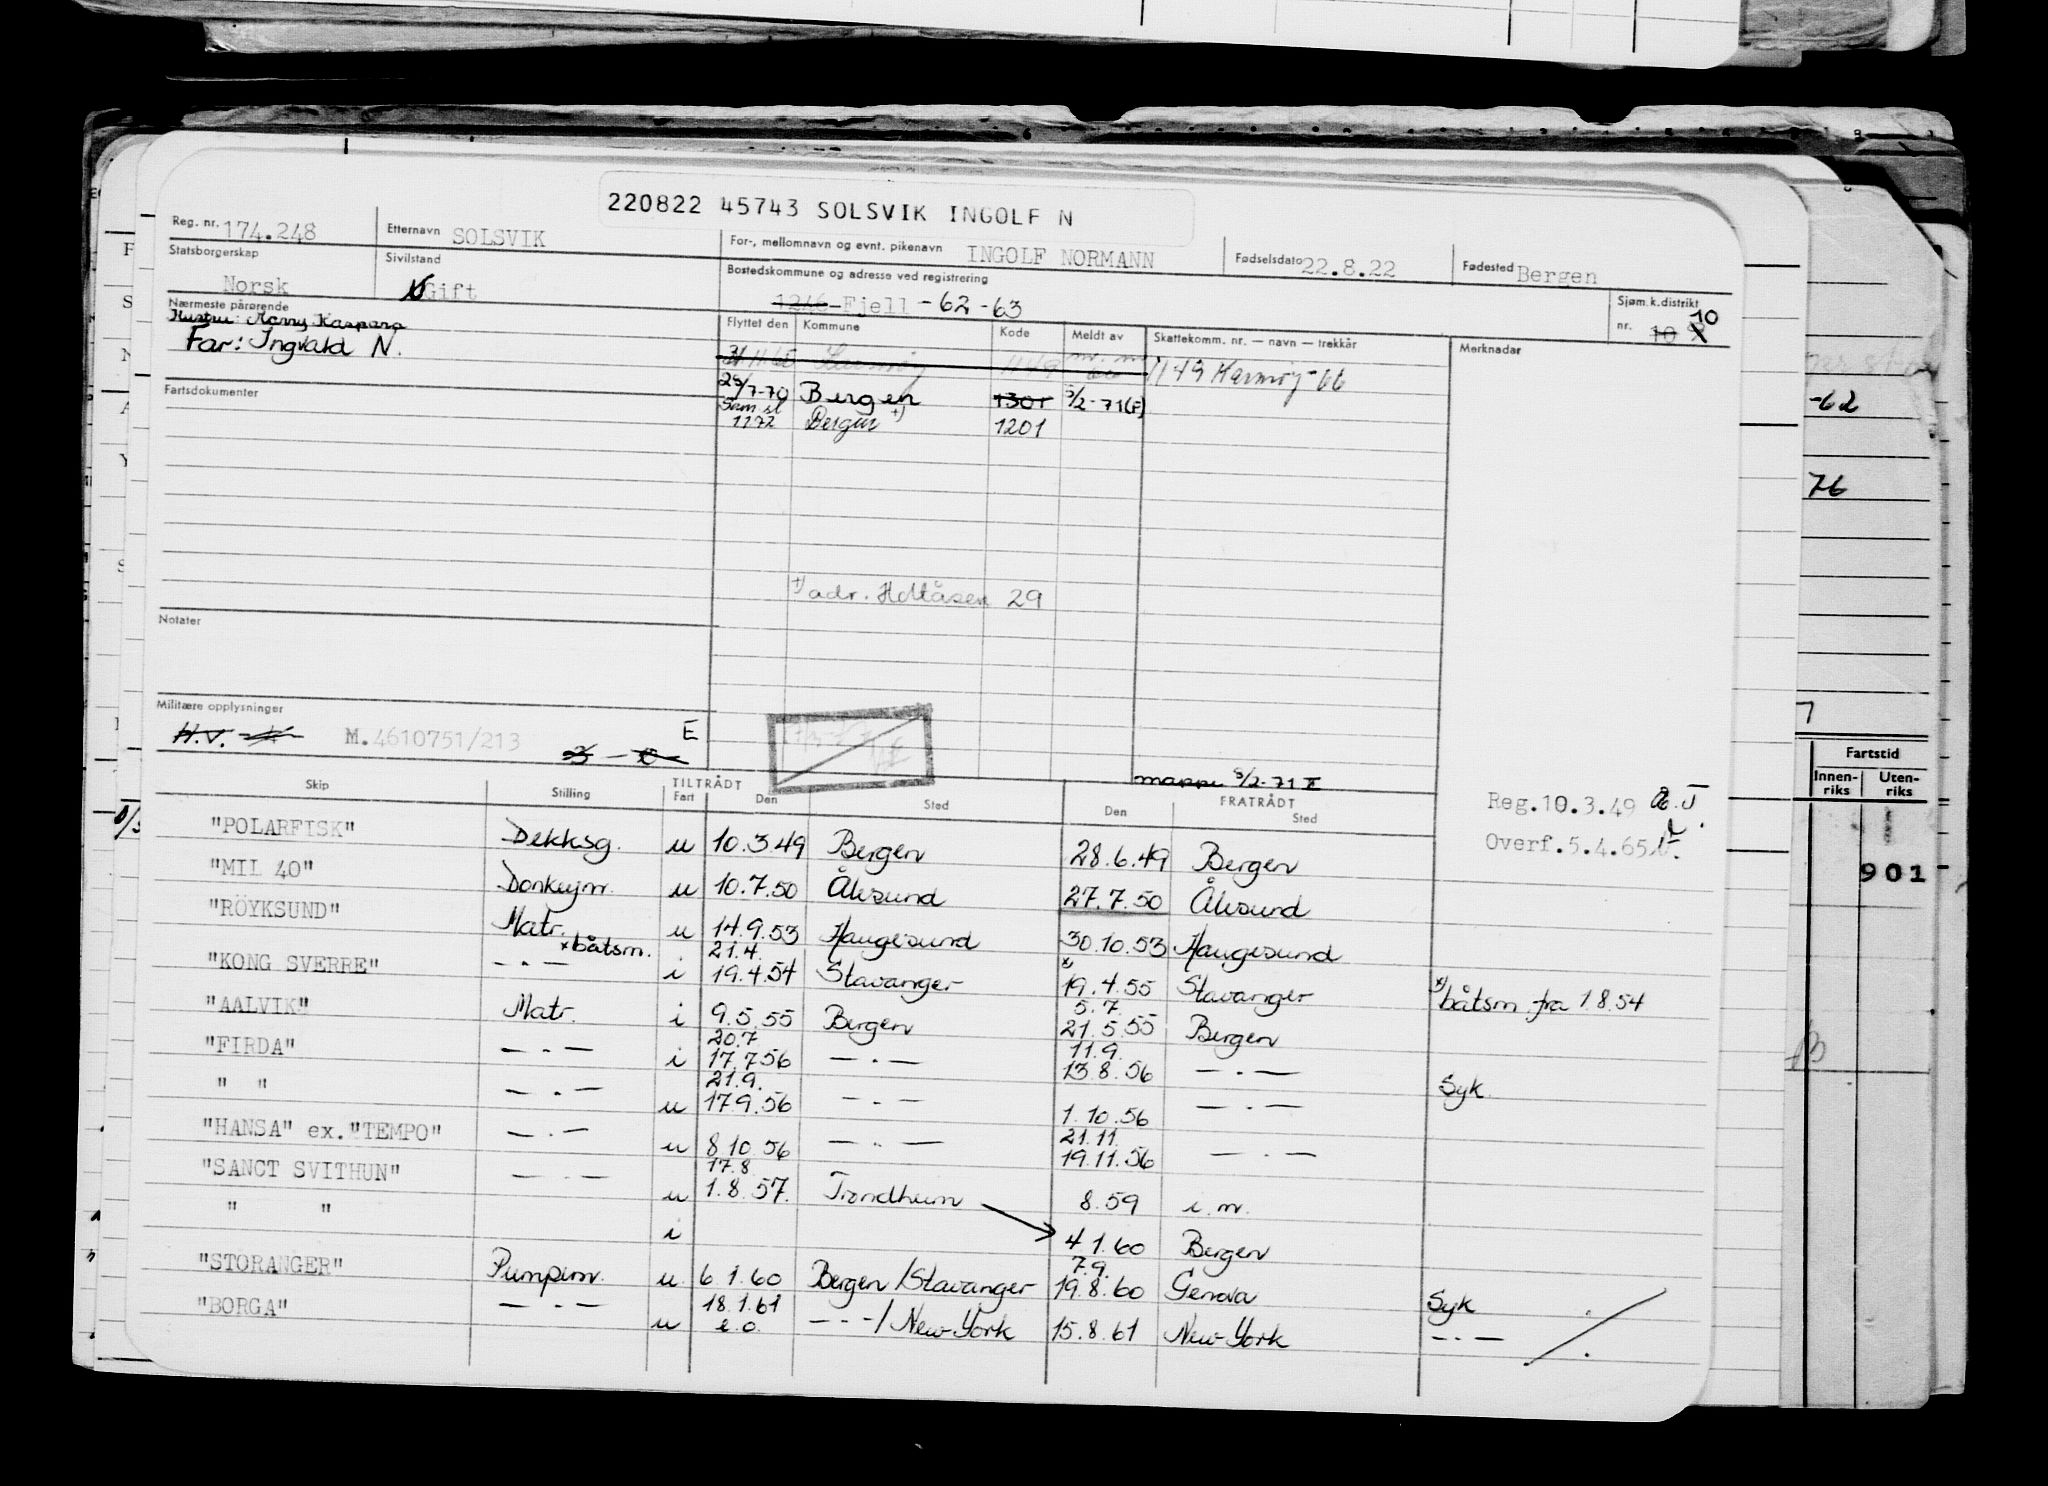 220822 45743 SOLSVIK INGOLF N
Reg. nr. 174.248 Etternavn SOLSVIK For-, mellomnavn og evnt. pikenavn INGOLF NORMANN Fødselsdato 22.8.22 Fødested Bergen
Statsborgerskap Norsk Sivilstand Gift Bostedskommune og adresse ved registrering 1246 Fjell -62 -63 Sjøm.k.distrikt nr. 10 10
Nærmeste pårørende
Hustru: Kaspara
Far: Ingvald N.
Flyttet den Kommune Kode Meldt av Skattekomm. nr. — navn — trekkår Merknadar
1149 Karmøy -66
Fartsdokumenter
29/7-70 Bergen 1301 5/2-71(F)
1172 Bergen +) 1201
+) adr. Holtåsen 29
Notater
Militære opplysninger
H.V. M.4610751/213 E
5/2-71
Skip Stilling TILTRÅDT Fart Den Sted FRATRÅDT Den Sted
Reg.10.3.49
Overf.5.4.65
"POLARFISK" Dekksg. u 10.3.49 Bergen 28.6.49 Bergen
"MIL 40" Donkeym. u 10.7.50 Ålesund 27.7.50 Ålesund
"RÖYKSUND" Matr. u 14.9.53 Haugesund 30.10.53 Haugesund
"KONG SVERRE" — . — x båtsm. i 21.4. 19.4.54 Stavanger x) 19.4.55 Stavanger x) båtsm. fra 1.8.54
"AALVIK" Matr. i 9.5.55 Bergen 5.7. 21.5.55 Bergen
"FIRDA" — . — i 20.7 17.7.56 — . — 11.9. 13.8.56 — . — Syk.
" " — . — u 21.9. 17.9.56 — . — 1.10.56 — . —
"HANSA" ex."TEMPO" — . — u 8.10.56 — . — 21.11. 19.11.56 — . —
"SANCT SVITHUN" — . — u 17.8 1.8.57. Trondheim 8.59 i.m.
" " i 4.1.60 Bergen
"STORANGER" Pumpem. u 6.1.60 Bergen/Stavanger 7.9. 19.8.60 Genova Syk
"BORGA" — . — u 18.1.61 e.o. — . —/ New York 15.8.61 New York — . —
-62
76
Fartstid
Innen-riks Uten-riks
901